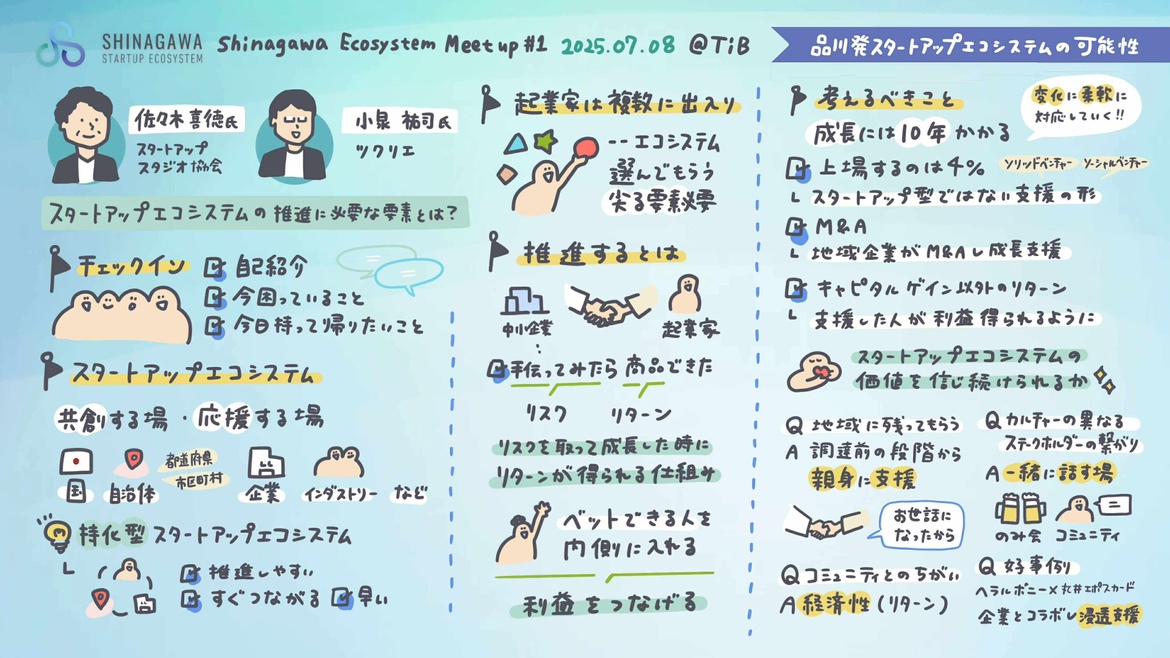 SHINAGAWA
STARTUP ECOSYSTEM
Shinagawa Ecosystem Meetup #1 2025.07.08 @TiB
品川発スタートアップエコシステムの可能性
佐々木喜徳氏
スタートアップ
スタジオ協会
小泉 祐司氏
ツクリエ
スタートアップエコシステムの推進に必要な要素とは?
チェックイン
自己紹介
今困っていること
今日持って帰りたいこと
スタートアップエコシステム
共創する場・応援する場
国
自治体
都道府県
市区町村
企業
インダストリー
など
特化型スタートアップエコシステム
推進しやすい
すぐつながる
早い
起業家は複数に出入り
--エコシステム
選んでもらう
尖る要素必要
推進するとは
中小企業
起業家
手伝ってみたら商品できた
リスク
リターン
リスクを取って成長した時に
リターンが得られる仕組み
ベットできる人を
内側に入れる
利益をつなげる
考えるべきこと
変化に柔軟に
対応していく!!
成長には10年かかる
上場するのは4%
ソリッドベンチャー
ソーシャルベンチャー
スタートアップ型ではない支援の形
M&A
地域企業がM&Aし成長支援
キャピタルゲイン以外のリターン
支援した人が利益得られるように
スタートアップエコシステムの
価値を信じ続けられるか
Q 地域に残ってもらう
A 調達前の段階から
親身に支援
お世話に
なったから
Q コミュニティとのちがい
A 経済性(リターン)
Q カルチャーの異なる
ステークホルダーの繋がり
A 一緒に話す場
のみ会
コミュニティ
Q 好事例
ヘラルボニー×丸井エポスカード
企業とコラボし浸透支援